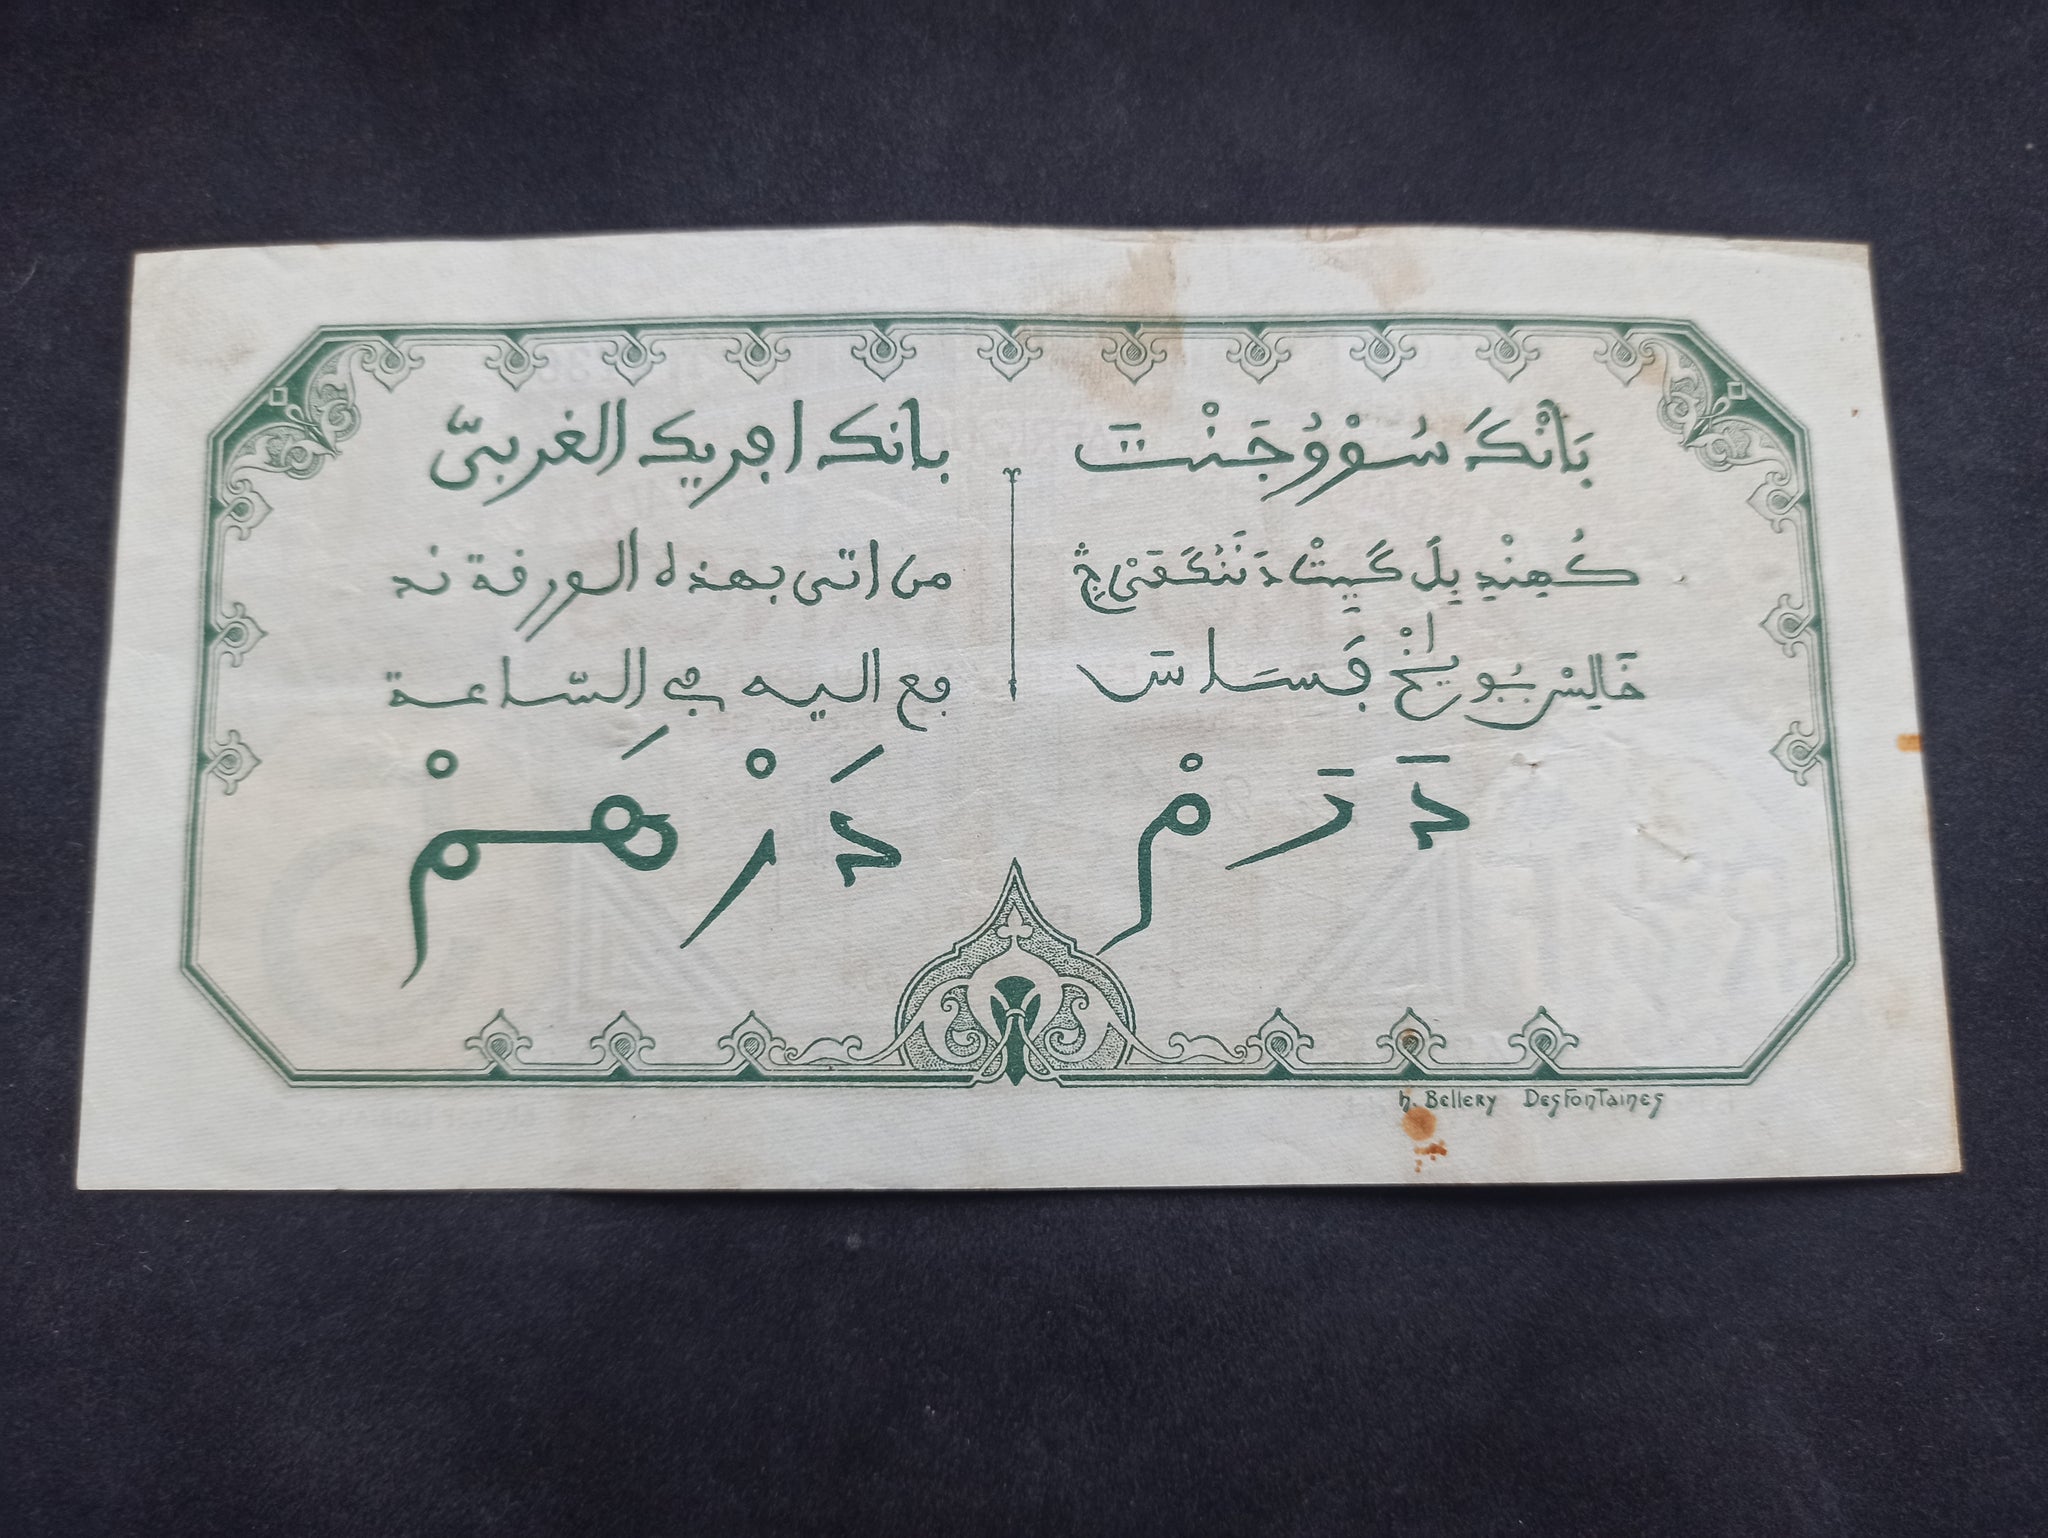 بَانْكَ سُوْوُجَنْتَ
كُهِنْدِ يِلَ كَيِتْ دَنَنُكَفَىْ جِ
خَالِسْ بُيُو يَاخْ فَسَاسَ
دَرَمْ
بانك افريك الغربىّ
من اتى بهذه الورقة ند
فع اليه في السّاعة
دَرْهَمْ
h. Bellery Desfontaines